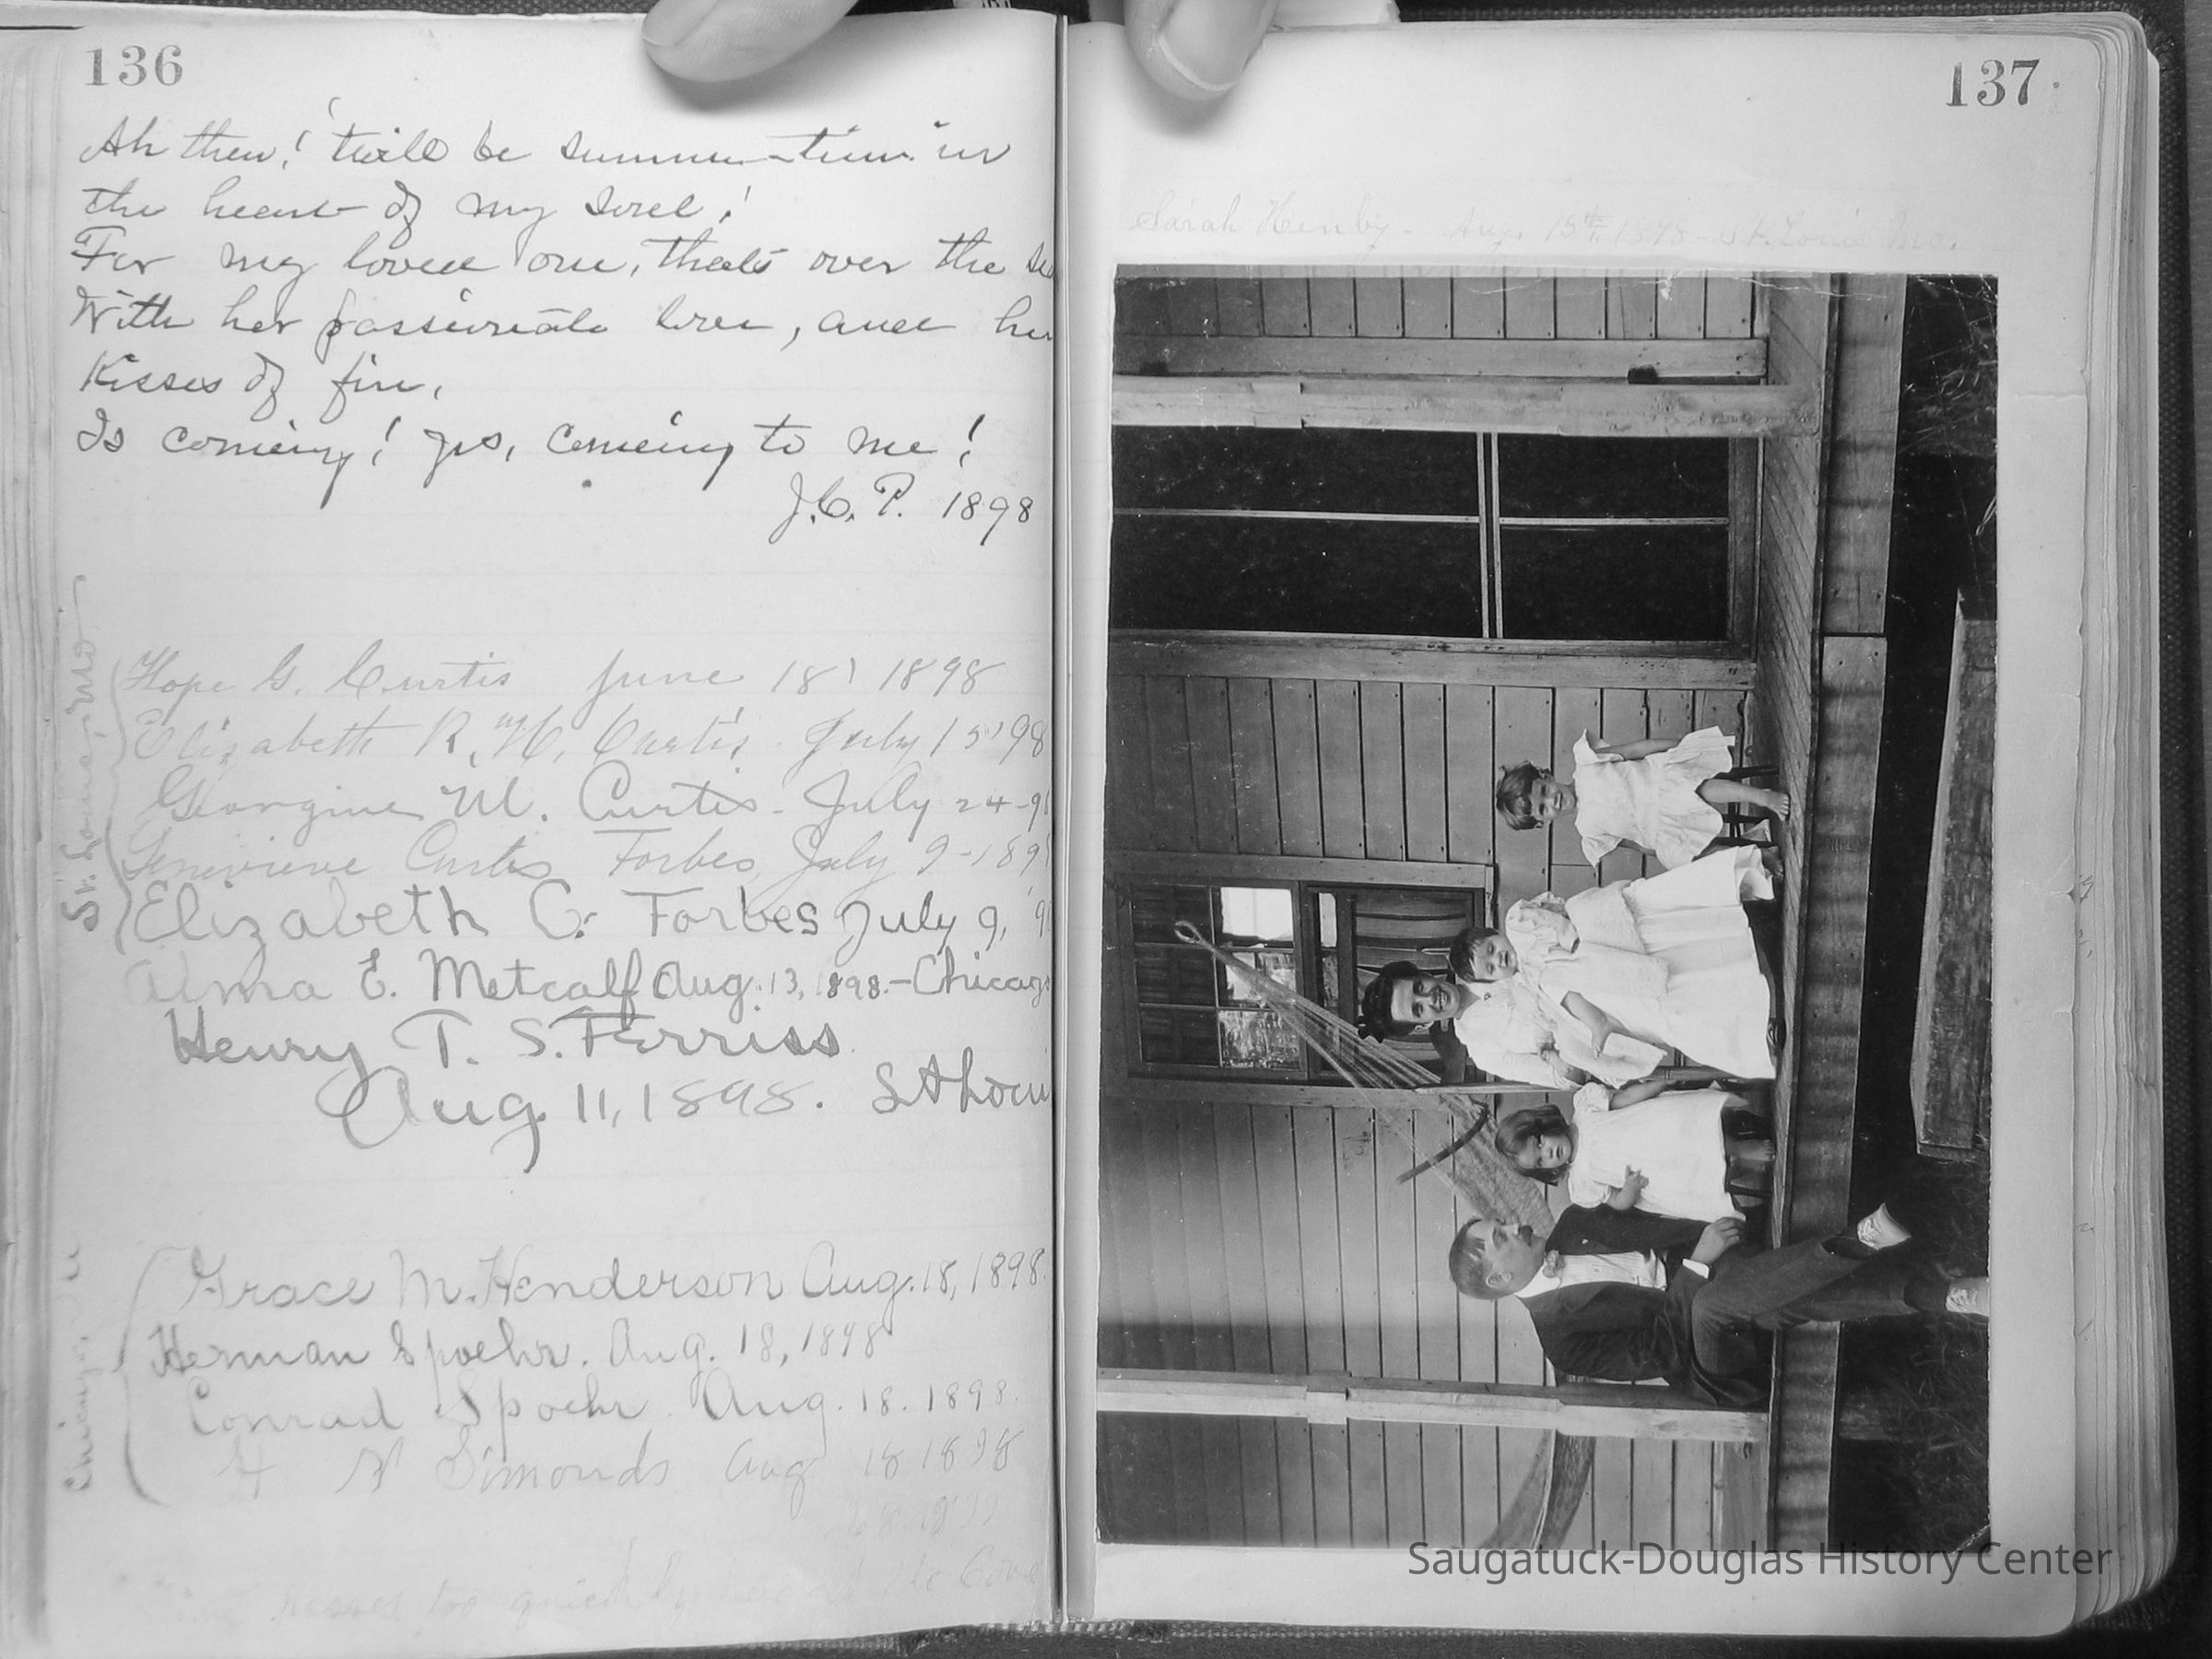 136
Ah then! 'twill be summer-time in
the heart of my soul!
For my loved one, that's over the
With her passionate love, and her
Kisses of fire,
Is coming! yes, coming to me!
J.C.P. 1898
St. Louis, Mo.
Hope G. Curtis June 18' 1898
Elizabeth R. Mc. Curtis. July 15 '98
Georgine M. Curtis - July 24-9
Genevieve Curtis Forbes, July 9-189
Elizabeth C. Forbes July 9, '9
Alma E. Metcalf Aug. 13, 1898.-Chicago
Henry T. S. Ferriss
Aug. 11, 1898. St Loui
Chicago,
Grace M. Henderson Aug. 18, 1898.
Herman Spoehr. Aug. 18, 1898
Conrad Spoehr. Aug. 18. 1898.
Simonds Aug 18 1898
too quickly
137
Sarah Henby - Aug. 15th, 1898 - St. Louis Mo.
Saugatuck-Douglas History Center